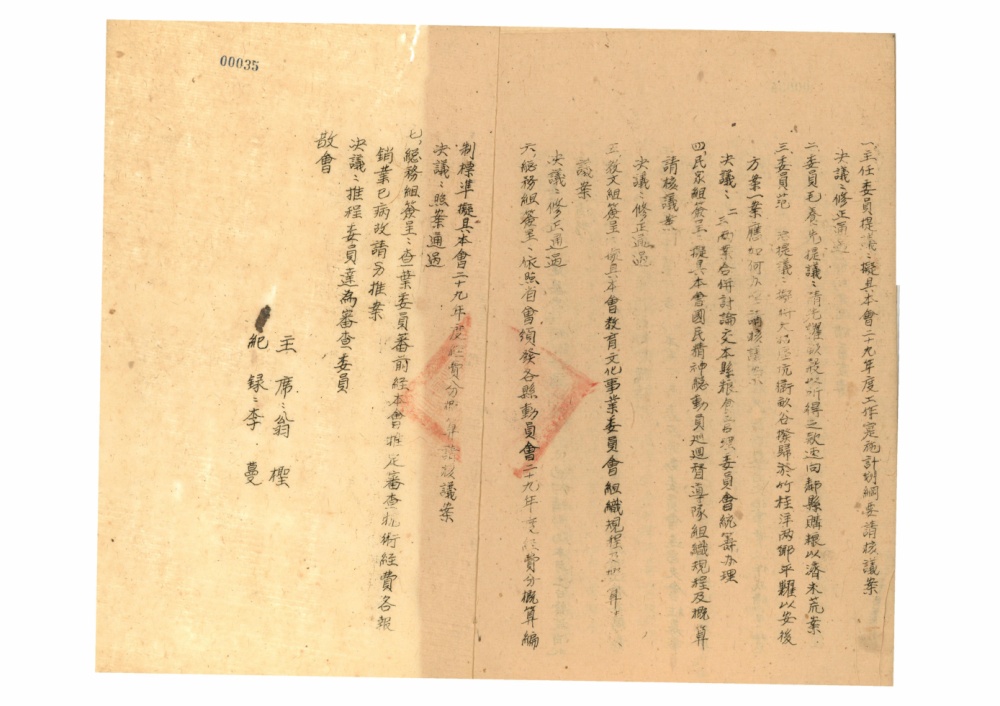 00035
一、主任委員提議:擬具本會二十九年度工作實施計劃綱要請核議案
決議:修正通過
二、委員毛 提議:請 以所得之款定向鄰縣購粮以濟米荒案
三、委員范 提議: 谷撥歸於竹桂洋兩鄉平糶以安後
方案一案應如何办 請核議
決議:二三兩案合併討論交本縣粮食 委員會統籌办理
四、民眾組簽呈、擬具本會國民精神總動員巡迴督導隊組織規程及概算
請核議案
決議:修正通過
五、教文組簽呈、擬具本會教育文化事業委員會組織規程
議案
決議:修正通過
六、總務組簽呈、依照省會頒發各縣動員會二十九年度經費分概算編
制標準擬具本會二十九年度經費分 算請核議案
決議:照案通過
七、總務組簽呈:查葉委員蕃前經本會推定審查 術經費各報
銷葉已病故請另推案
決議:推程委員達為審查委員
散會
主席:翁檉
紀録:李蔓